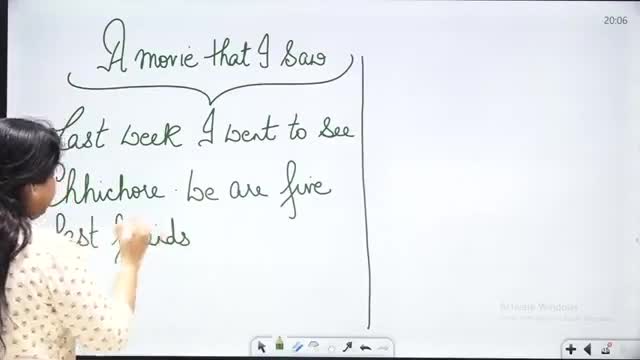 20:06
A movie that I saw
Last week I went to see
Chhichore. We are five
Best friends
Activate Windows